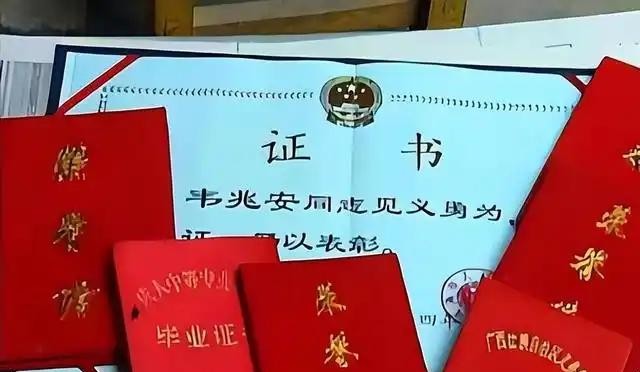 证 书
韦兆安同志见义勇为,
证
以表彰。
四年
荣誉证
成人中等专业
毕业证
荣誉
荣誉证
广西壮族自治区